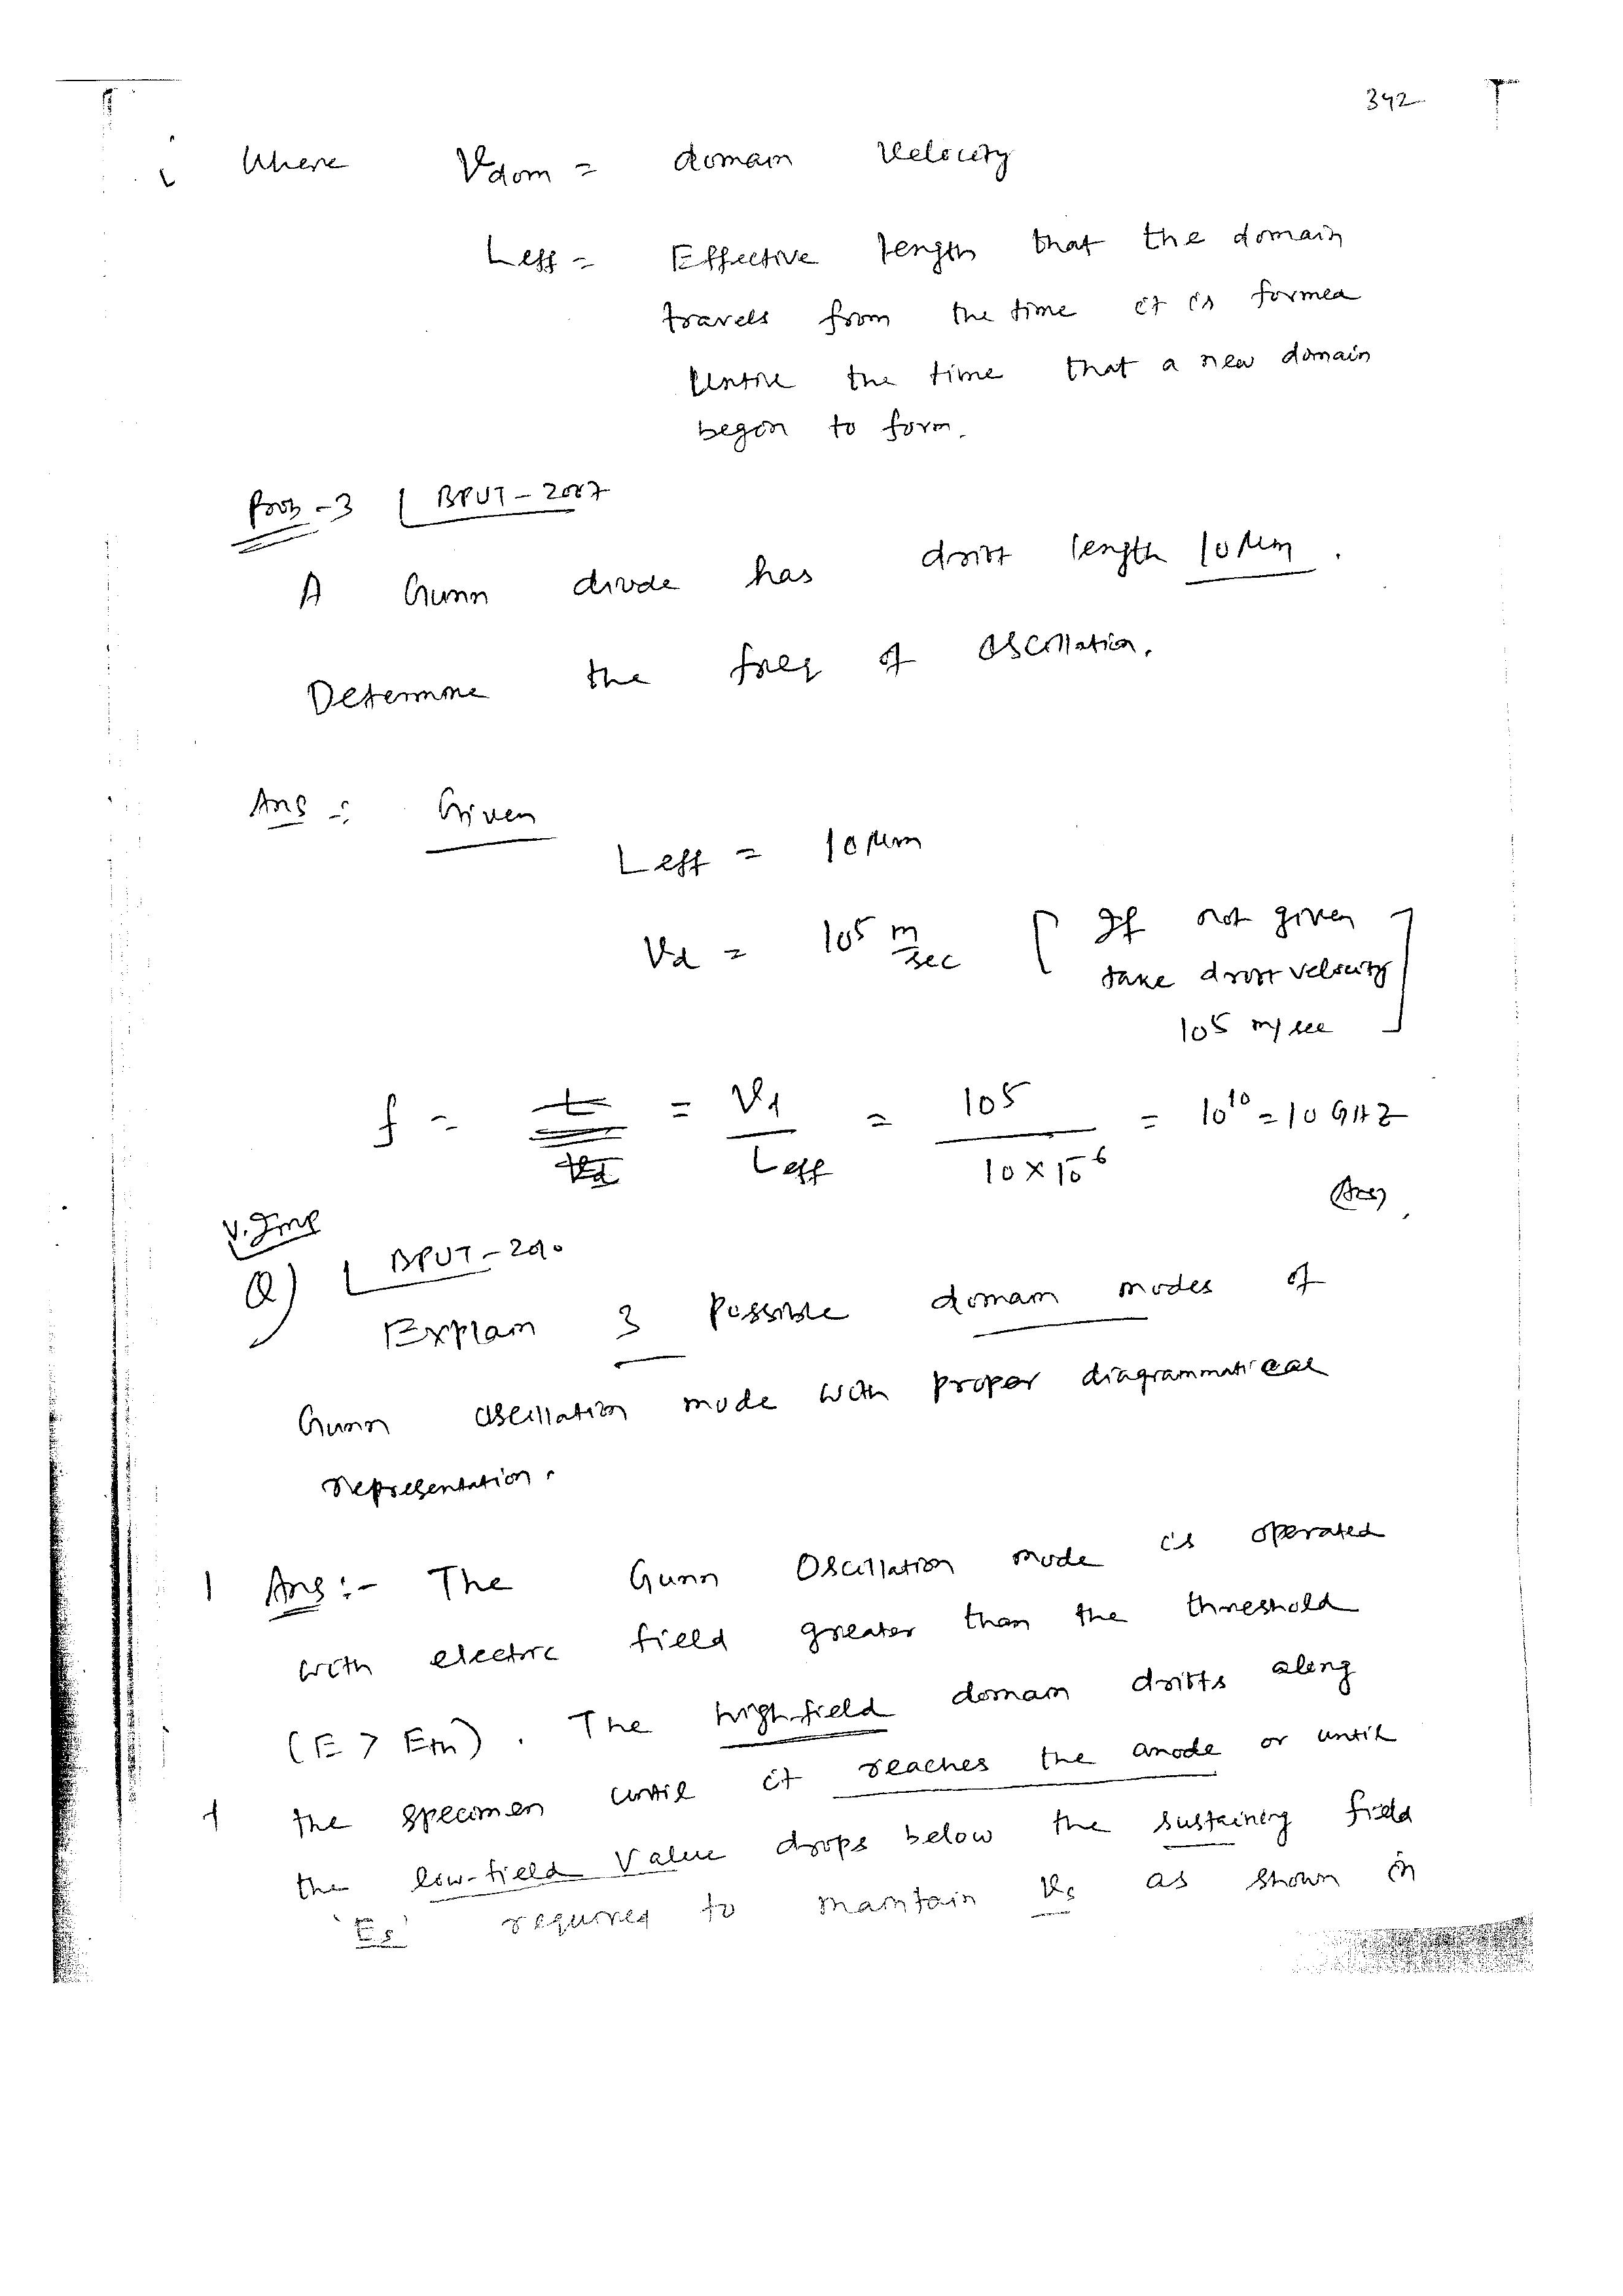 342
Where Vdom = domain velocity
Leff = Effective length that the domain
travels from the time it is formed
until the time that a new domain
begin to form.
Prob - 3 BPUT - 2007
A Gunn diode has drift length 10 μm .
Determine the freq of oscillation.
Ans :- Given
Leff = 10 μm
Vd = 10^5 m/sec [ If not given
take drift velocity
10^5 m/sec ]
f = = Vd / Leff = 10^5 / 10 × 10^-6 = 10^10 = 10 GHZ
(Ans)
V. Imp
Q) BPUT - 2010
Explain 3 possible domain modes of
Gunn oscillation mode with proper diagrammatical
representation.
Ans :- The Gunn Oscillation mode is operated
with electric field greater than the threshold
(E > Eth) . The high-field domain drifts along
the specimen until it reaches the anode or until
the low-field value drops below the sustaining field
'Es' required to maintain Vs as shown in